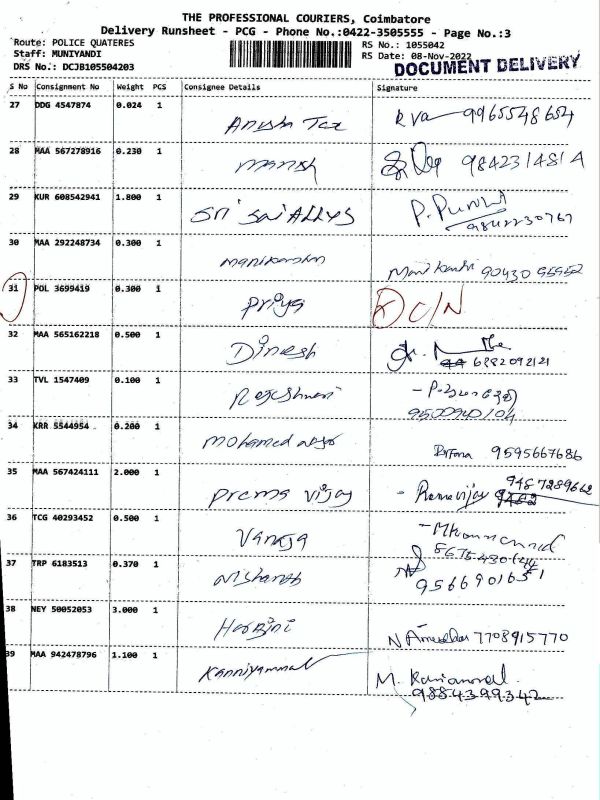 THE PROFESSIONAL COURIERS, Coimbatore
Delivery Runsheet - PCG - Phone No.:0422-3505555 - Page No.:3
Route: POLICE QUATERES RS No.: 1055042
Staff: MUNIYANDI RS Date: 08-Nov-2022
DRS No.: DCJB105504203 DOCUMENT DELIVERY
S No Consignment No Weight PCS Consignee Details Signature
27 DDG 4547874 0.024 1 Anusha Tax 9965548654
28 MAA 567278916 0.230 1 Manish
29 KUR 608542941 1.800 1 Sri Sai Alloys
30 MAA 292248734 0.300 1 Manikandan 90430 95952
31 POL 3699419 0.300 1 Priya C/N
32 MAA 565162218 0.500 1 Dinesh
33 TVL 1547409 0.100 1 Rajeshwari
34 KRR 5544954 0.200 1 Mohamed 9595667686
35 MAA 567424111 2.000 1 Prema Vijay 9487289662
36 TCG 40293452 0.500 1 Vanaja
37 TRP 6183513 0.370 1 Nishanth
38 NEY 50052053 3.000 1 Harini 7708915770
39 MAA 942478796 1.100 1 Kanniyammal
9884399342